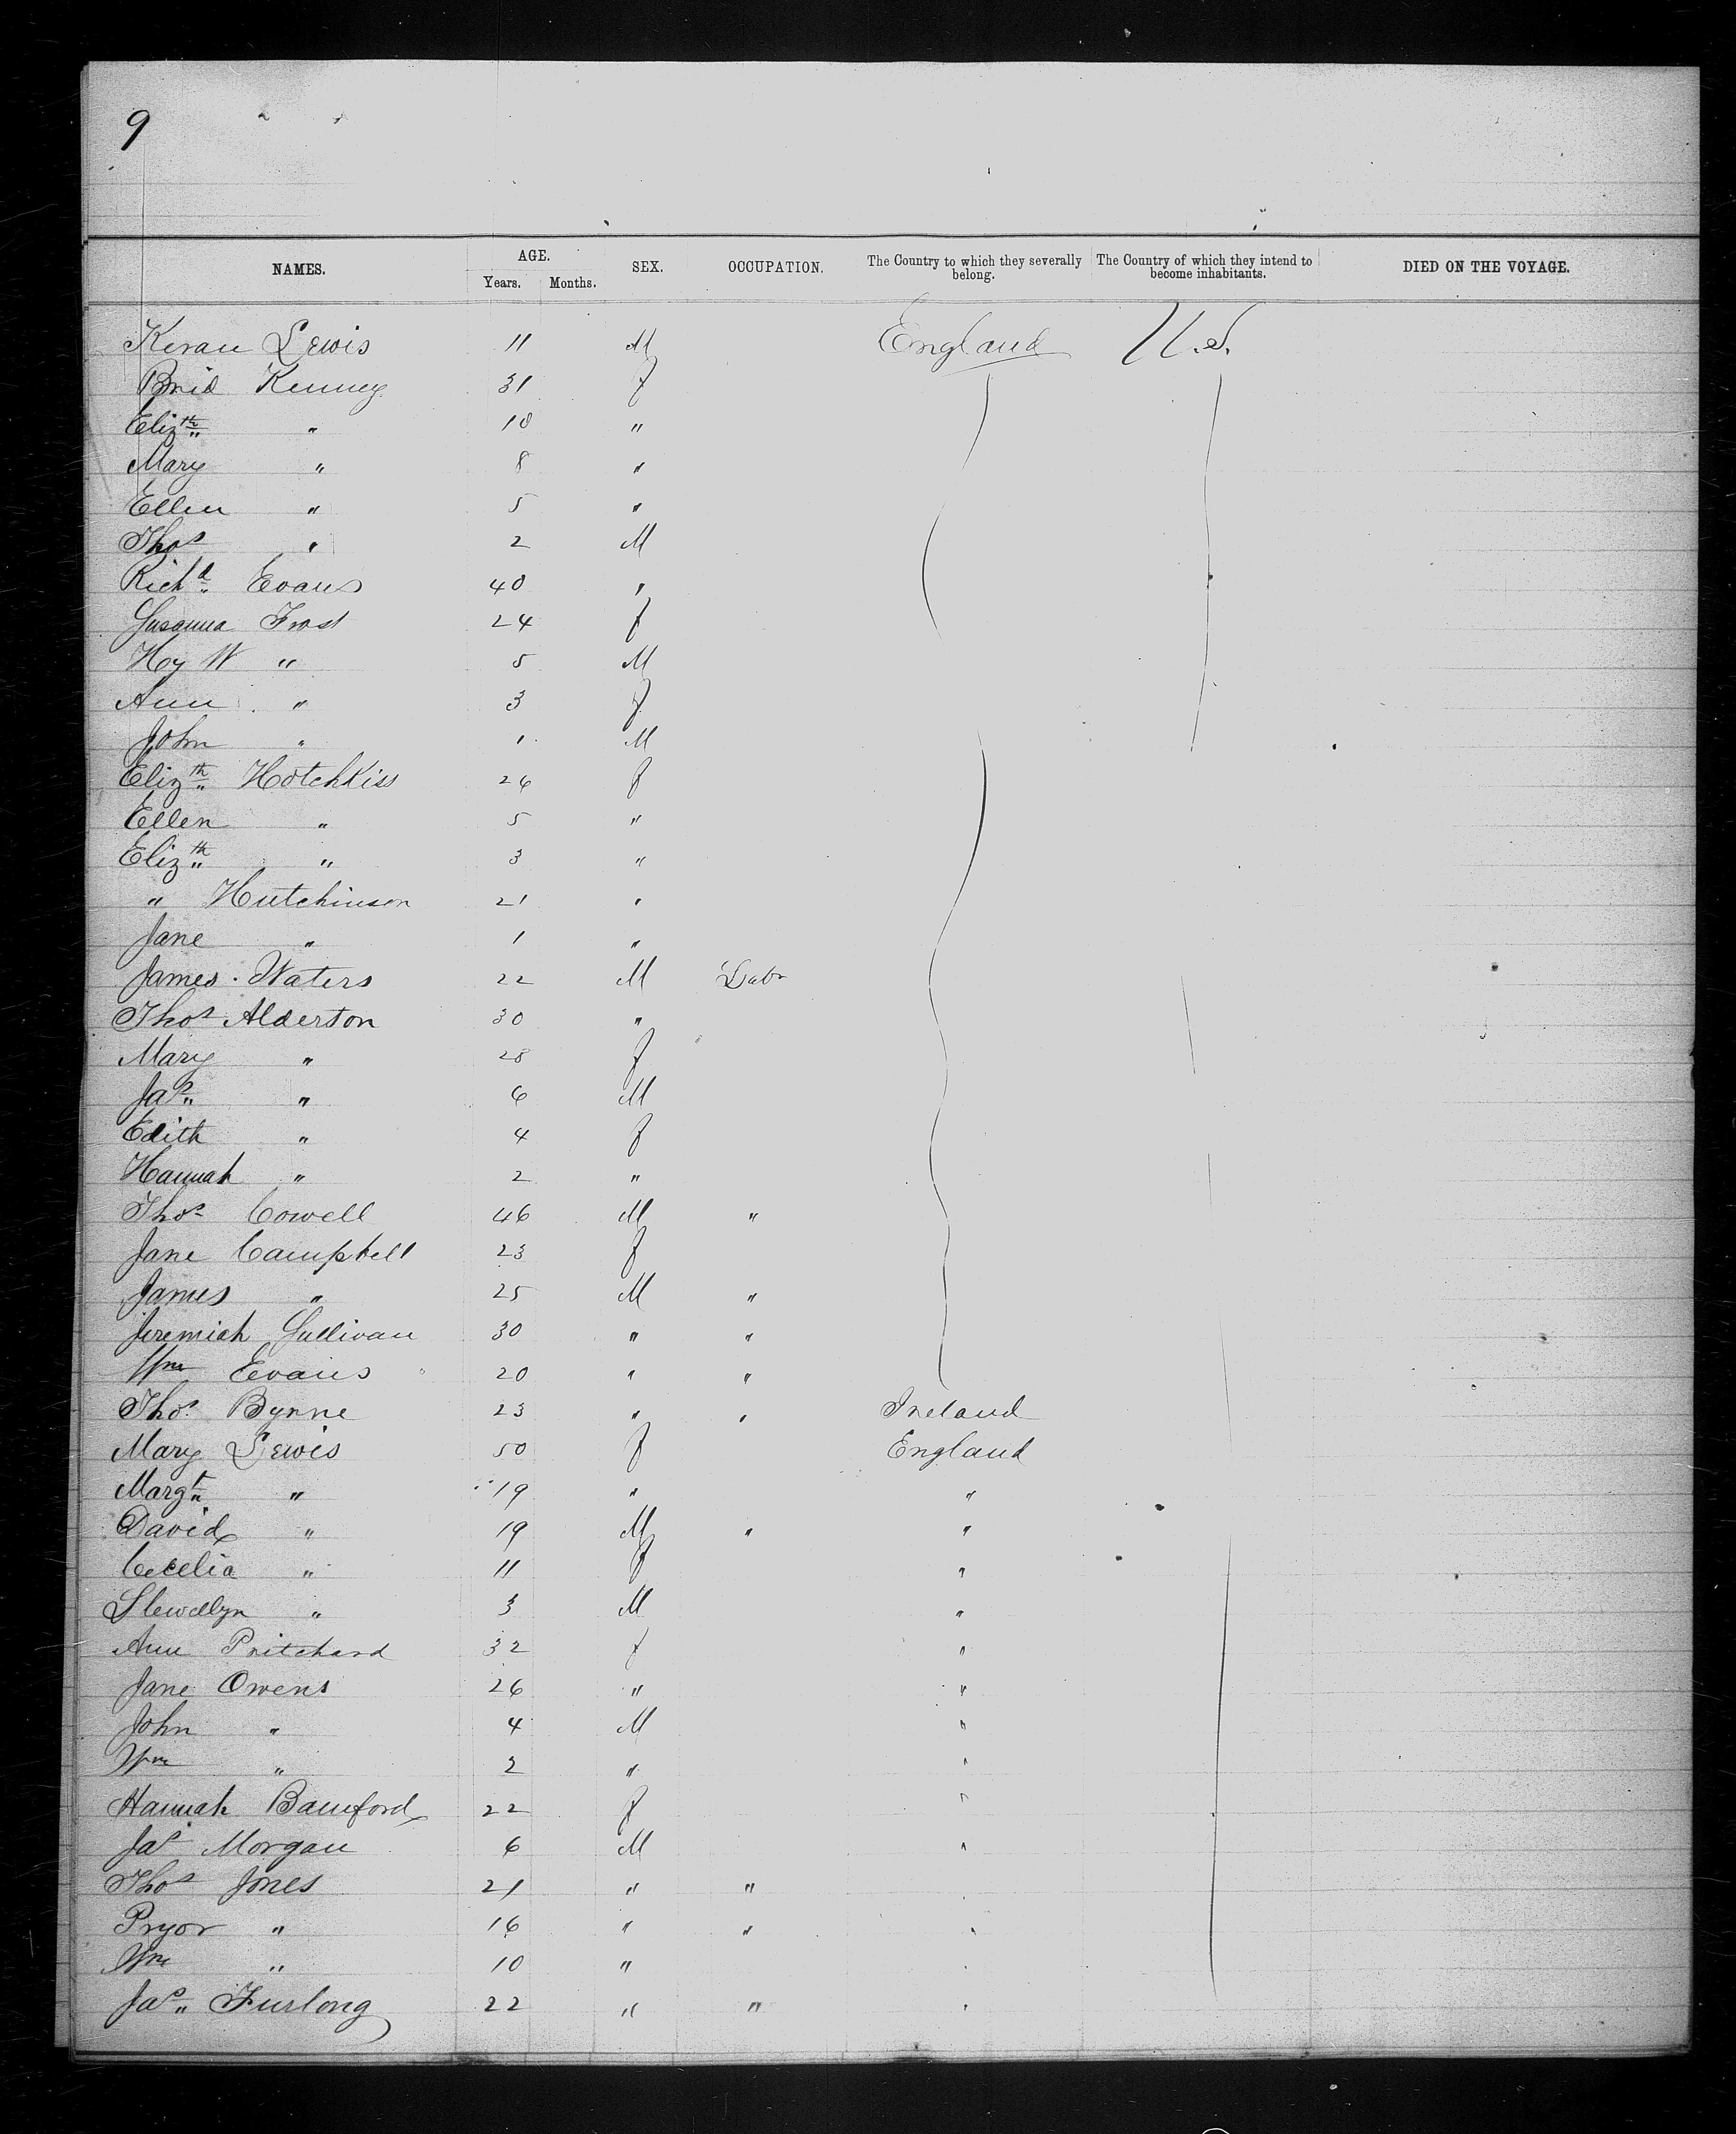 9
NAMES. AGE. Years. Months. SEX. OCCUPATION. The Country to which they severally belong. The Country of which they intend to become inhabitants. DIED ON THE VOYAGE.
Kivan Lewis 11 M England U.S.
Brid Kenney 31 f
Elizth " 10 "
Mary " 8 "
Ellen " 5 "
Thos " 2 M
Richd Evans 40 "
Susanna Frost 24 f
Hy W " 5 M
Ann " 3 f
John " 1 M
Elizth Hotchkiss 26 f
Ellen " 5 "
Elizth " 3 "
" Hutchinson 21 "
Jane " 1 "
James Waters 22 M Labr
Thos Alderton 30 "
Mary " 28 f
Jas " 6 M
Edith " 4 f
Hannah " 2 "
Thos Cowell 46 M "
Jane Campbell 23 f
James " 25 M "
Jeremiah Sullivan 30 " "
Wm Evans 20 " "
Thos Byrne 23 " " Ireland
Mary Lewis 50 f England
Margt " 19 " "
David " 19 M " "
Cecelia " 11 f "
Llewellyn " 3 M "
Ann Pritchard 32 f "
Jane Owens 26 " "
John " 4 M "
Wm " 2 " "
Hannah Bamford 22 f "
Jas Morgan 6 M "
Thos Jones 21 " " "
Pryor " 16 " " "
Wm " 10 " "
Jas Furlong 22 " " "